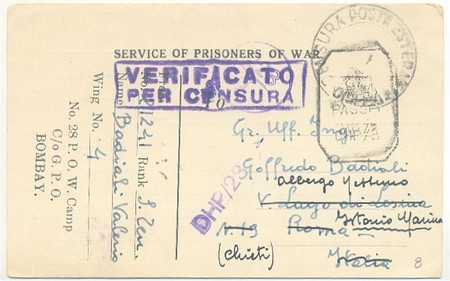 SERVICE OF PRISONERS OF WAR
VERIFICATO
PER CENSURA
CENSURA POSTA ESTERA
PASSED
DHP/23
Gr. Uff. Ing.
Goffredo Badiali
albergo Nettuno
V. Lago di Lesina
N. 19 Roma Istonio Marina
(Chieti) Italia
8
No. Rank S. Ten.
Name Badiali Valerio
Wing No. 4
No. 28 P. O. W. Camp
C/o G. P. O.
BOMBAY.